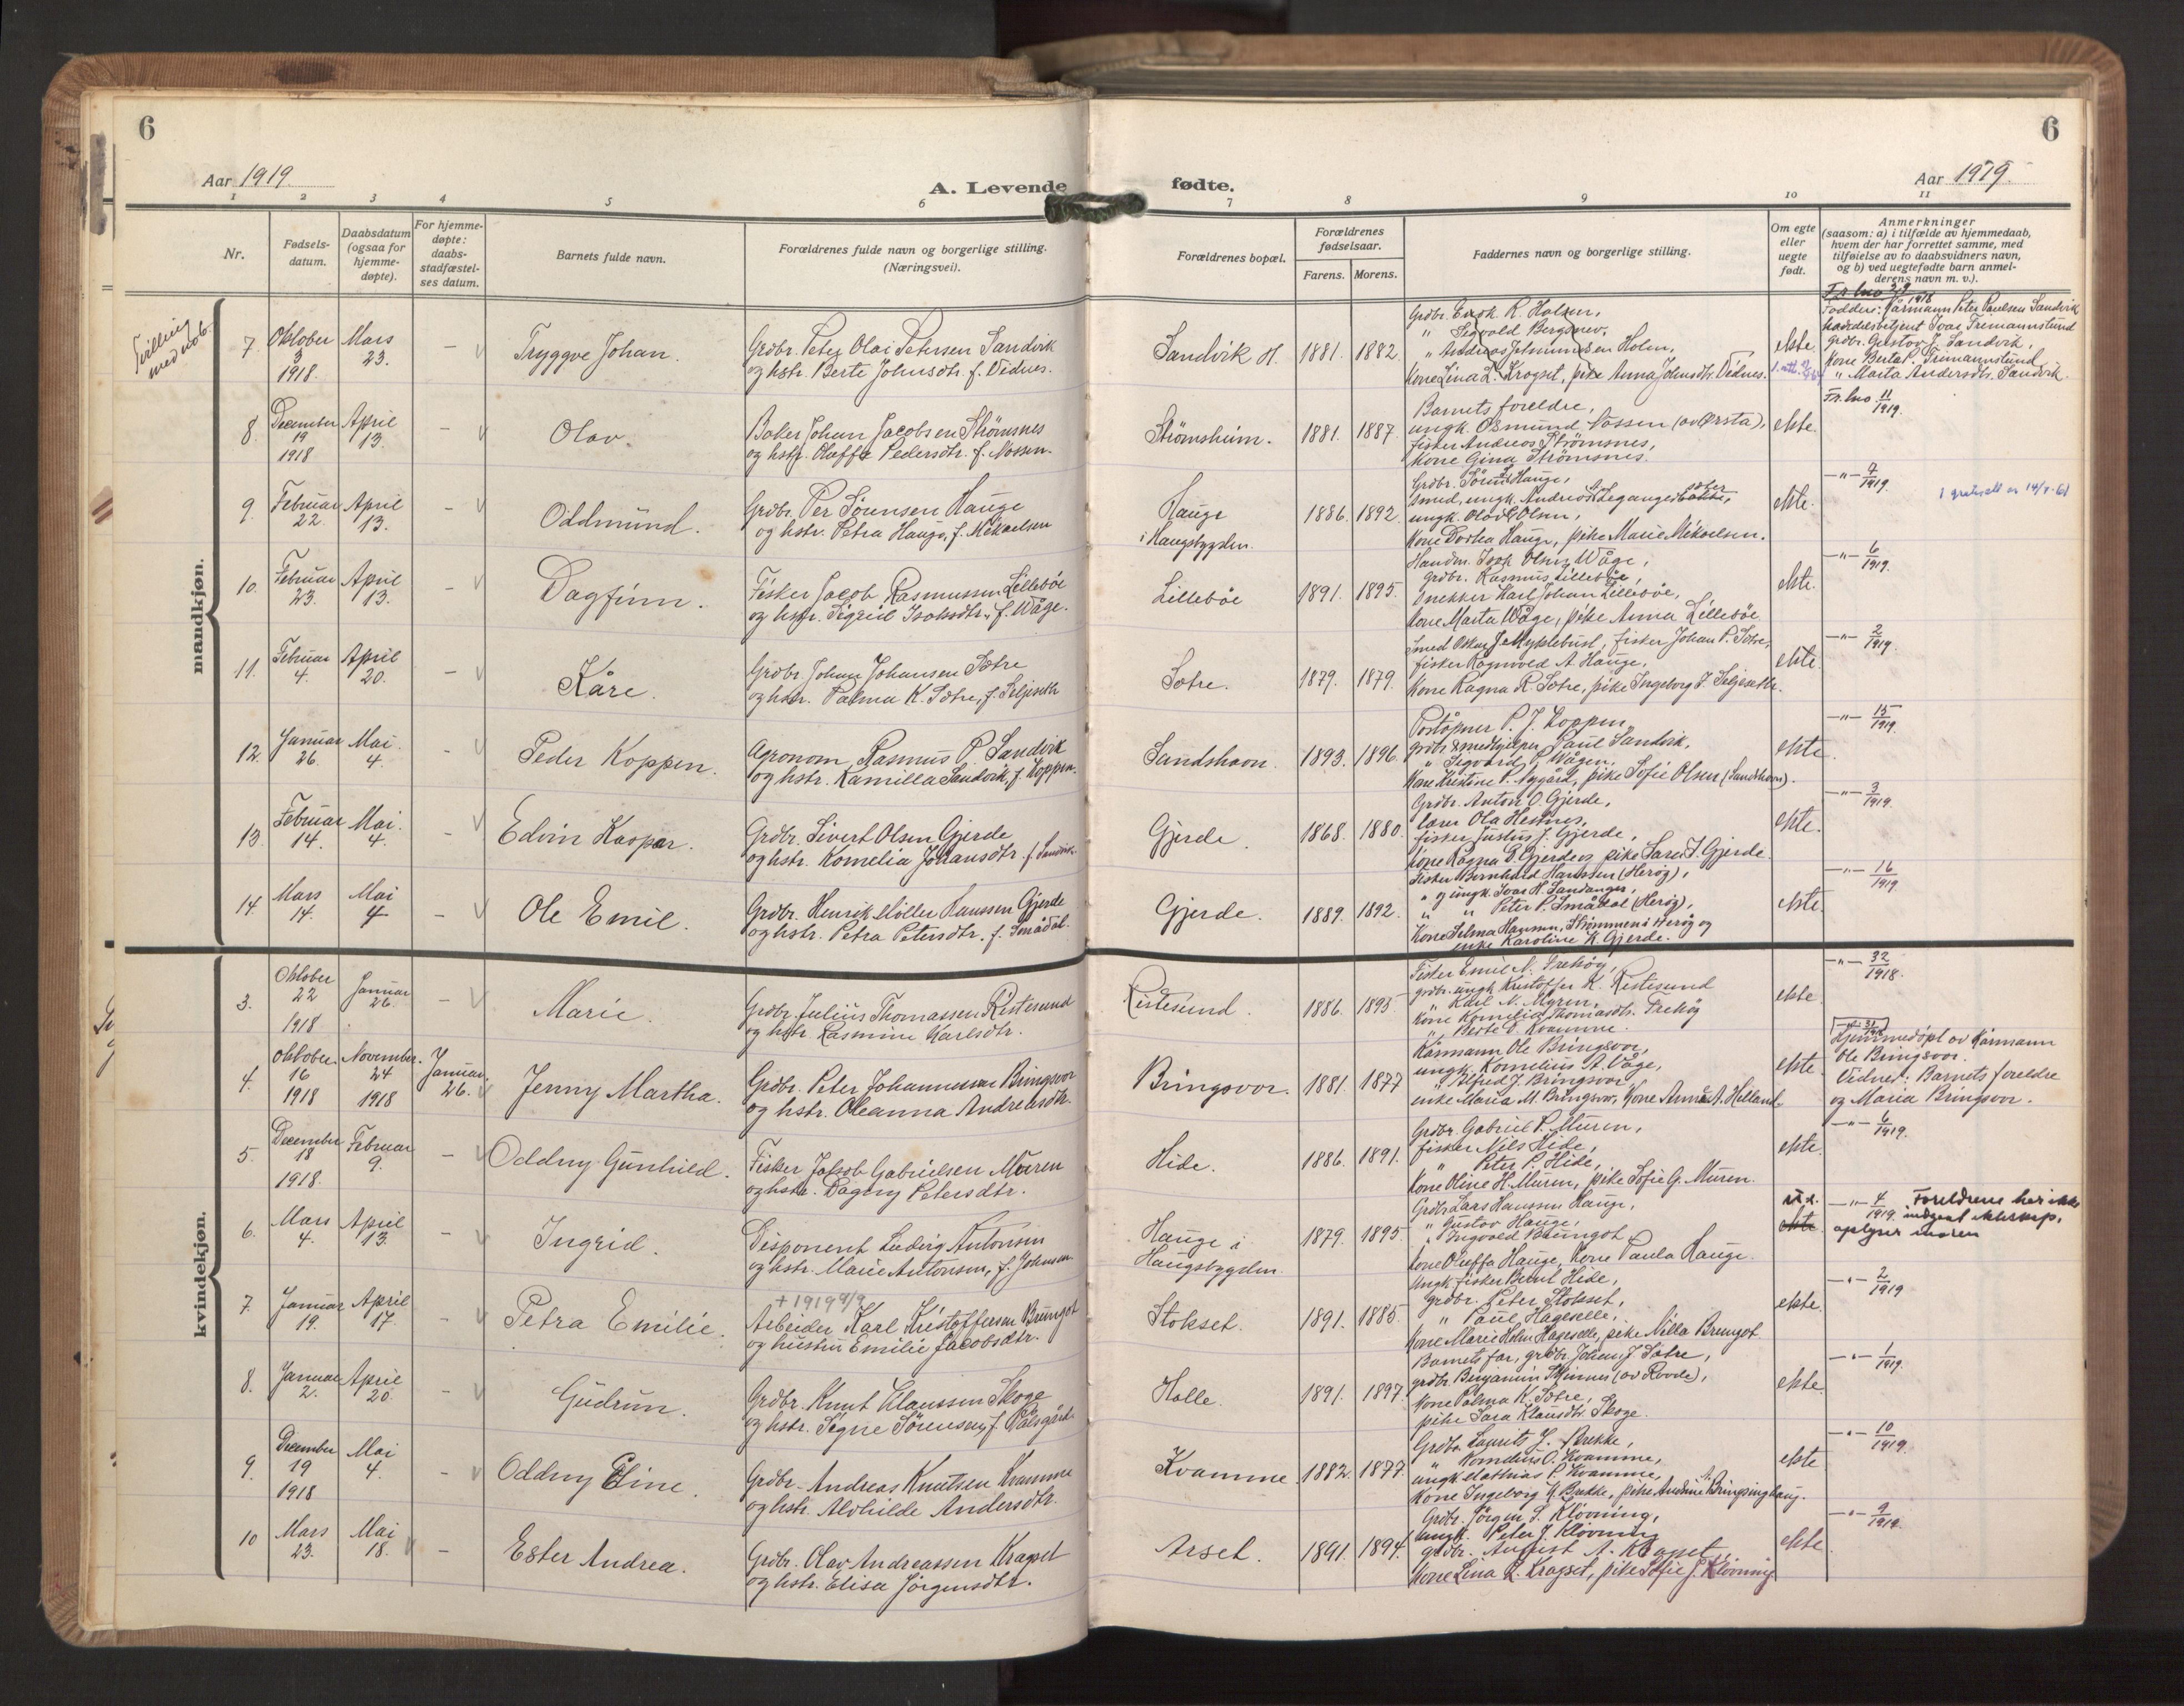 6
6
Aar 1919.
A. Levende
fødte.
Aar 1919.
1 2 3 4 5 6 7 8 9 10 11
Nr.
Fødsels-
datum.
Daabsdatum
(ogsaa for
hjemme-
døpte).
For hjemme-
døpte:
daabs-
stadfæstel-
ses datum.
Barnets fulde navn.
Forældrenes fulde navn og borgerlige stilling.
(Næringsvei).
Forældrenes bopæl.
Forældrenes
fødselsaar.
Farens. Morens.
Faddernes navn og borgerlige stilling.
Om egte
eller
uegte
født.
Anmerkninger
(saasom: a) i tilfælde av hjemmedaab,
hvem der har forrettet samme, med
tilføielse av to daabsvidners navn,
og b) ved uegtefødte barn anmel-
derens navn m. v.).
mandkjøn.
Tvilling
med no 6.
7. Oktober 3 1918. Mars 23. –
Tryggve Johan.
Grdbr. Peter Olai Petersen Sandvik
og hstr. Berte Johnsdtr. f. Vidnes.
Sandvik 1881. 1882.
Grdbr. Enok R. Holsen,
" Sigvald Bergsnev,
" Andreas Holen,
Kone Lina L. Krogset, pike Anna Johnsdtr. Vidnes.
ekte.
Faddere: Kårmann Peter Paulsen Sandvik
Ivar Tremannstund
grdbr. Gustav J. Sandvik,
Kone Berta P. Tremannstund
" Marta Andersdtr. Sandvik.
8. December 19 1918 April 13. –
Olav.
Baker Johan Jacobsen Strømsnes
og hstr. Oluffa Pedersdtr. f. Nossen.
Strømsheim. 1881. 1887.
Barnets foreldre,
ungk. Osmund Nossen (av Ørsta),
fisker Andreas Strømsnes,
Kone Gina Strømsnes.
ekte.
Fr. lno 11/1919.
9. Februar 22. April 13. –
Oddmund.
Grdbr. Per Sørensen Hauge
og hstr. Petra Hauge, f. Mekaelsen
Hauge
i Haugsbygden. 1886. 1892.
Grdbr. Søren Hauge,
smed, ungk. Andreas Leganger
ungk. Olav Olsen,
Kone Dorthea Hauge, pike Marie Mikaelsen.
ekte.
–"– 9/1919.
10. Februar 23. April 13. –
Dagfinn.
Fisker Jacob Rasmussen Lillebøe
og hstr. Sigrid Isaksdtr. f. Wåge.
Lillebøe 1891. 1895.
Handm. Isak Olsen Wåge,
grdbr. Rasmus Lillebøe,
snekker Karl Johan Lillebøe,
Kone Marta Wåge, pike Anna Lillebøe
ekte.
–"– 6/1919.
11. Februar 4. April 20. –
Kåre.
Grdbr. Johan Johansen Sætre
og hstr. Palma K. Sætre, f. Seljeseth
Sætre. 1879. 1879.
Smed Oskar J. Myklebust, fisker Johan P. Sætre,
fisker Ragnvald A Hauge,
Kone Ragna R. Sætre, pike Ingeborg J. Seljeseth.
ekte.
–"– 2/1919.
12. Januar 26. Mai. 4. –
Peder Koppen.
Agronom Rasmus P. Sandvik
og hstr. Kamilla Sandvik, f. Koppen.
Sandshavn. 1893. 1896.
Poståpner P. J. Koppen,
grdbr. & medhjelper Paul Sandvik,
" Sigvard Wågen,
Kone Kristine P. Nygård, pike Sofie Olsen (Sandshavn).
ekte
–"– 15/1919.
13. Februar 14. Mai. 4. –
Edvin Kaspar.
Grdbr. Sivert Olsen Gjerde
og hstr. Kornelia Johansdtr. f. Sandvik.
Gjerde. 1868. 1880.
Grdbr. Anton O. Gjerde,
lærer Ola Hestnes,
fisker Justus J. Gjerde,
Kone Ragna Gjerde og pike Sara J. Gjerde.
ekte.
–"– 3/1919.
14. Mars 14. Mai 4 –
Ole Emil.
Grdbr. Henrik Møller Hanssen Gjerde
og hstr. Petra Petersdtr. f. Smådal.
Gjerde. 1889. 1892.
Fisker Bernhard Hanssen (Herøy),
" og ungk. Ivar H. Sandanger,
" " Peter P. Smådal (Herøy),
Kone Selma Hansen, Strømmen i Herøy og
enke Karoline K. Gjerde.
ekte.
–"– 16/1919
kvindekjøn.
3. Oktober 22 1918 Januar 26. –
Marie.
Grdbr. Julius Thomassen Ristesund
og hstr. Rasmine Karlsdtr.
Ristesund. 1886. 1895.
Fisker Emil N. Trehøg
grdbr. ungk. Kristoffer K. Ristesund
" Karl N. Myren,
Kone Kornelia Thomasdtr. Trehøg
" Berte Kvamme.
ekte
–"– 32/1918.
4. Oktober 16 1918 November. 24 1918 Januar. 26.
Jenny Martha.
Grdbr. Peter Johannessen Bringsvor
og hstr. Oleanna Andreasdtr.
Bringsvor. 1881. 1877
Kårmann Ole Bringsvor,
ungk. Kornelius A. Våge,
" Alfred J. Bringsvor
enke Maria M. Bringsvor, Kone Anna A. Helland
ekte.
Hjemmedøpt av Kårmann
Ole Bringsvor.
Vidner: Barnets foreldre
og Maria Bringsvor.
5. December 18 1918. Februar 9. –
Oddny Gunhild.
Fisker Jakob Gabrielsen Muren
og hstr. Dagny Petersdtr.
Hide. 1886. 1891.
Grdbr. Gabriel P. Muren,
fisker Nils Hide,
" Peter P. Hide,
Kone Oline H. Muren, pike Sofie G. Muren.
ekte.
–"– 6/1919.
6. Mars 4. April 13. –
Ingrid.
Disponent Ludvig Antonsen
og hstr. Marie Antonsen, f. Johnsen
Hauge i
Haugsbygden. 1879. 1895.
Grdbr. Lars Hanssen Hauge,
" Gustav Hauge,
" Ingvald Brungot,
Kone Oluffa Hauge, Kone Paula Hauge.
ekte.
–"– 4/1919. Foreldrene har ikke
inngaat ekteskap,
oplyser moren
7. Januar 19. April 17. –
Petra Emilie.
+ 1919 9/9
Arbeider Karl Kristoffersen Brungot
og hustru Emilie Jacobsdtr.
Stokset. 1891. 1885.
Ungk. fisker Bernt Hide,
grdbr. Peter Stokset,
" Paul Hageselle,
Kone Marie Holm Hageselle, pike Nilla Brungot
ekte.
–"– 2/1919
8. Januar 2. April 20. –
Gudrun.
Grdbr. Knut Klaussen Skoge
og hstr. Signe Sørensen, f. Pålsgård.
Holle. 1891. 1897.
Barnets far, grdbr. Johan J. Sætre,
grdbr. Benjamin Skinnes (av Rovde),
Kone Palma K. Sætre,
pike Sara Klausdtr. Skoge.
ekte.
–"– 1/1919.
9. December 19 1918 Mai 4. –
Oddny Eline.
Grdbr. Andreas Knutsen Kvamme
og hstr. Alvhilde Andersdtr.
Kvamme. 1882. 1877.
Grdbr. Laurits J. Brekke,
" Kornelius O. Kvamme,
ungk. Mathias P. Kvamme,
Kone Ingeborg Brekke, pike Andrine Bringsinghaug.
ekte
–"– 10/1919.
10 Mars 23. Mai 18. –
Ester Andrea.
Grdbr. Olav Andreassen Kragset
og hstr. Elisa Jørgensdtr.
Årset. 1891. 1894.
Grdbr. Jørgen S. Kløvning,
ungk. Peter J. Kløvning
grdbr. August A. Kragset,
Kone Lina R. Kragset, pike Sofie J. Kløvning.
ekte
–"– 9/1919.